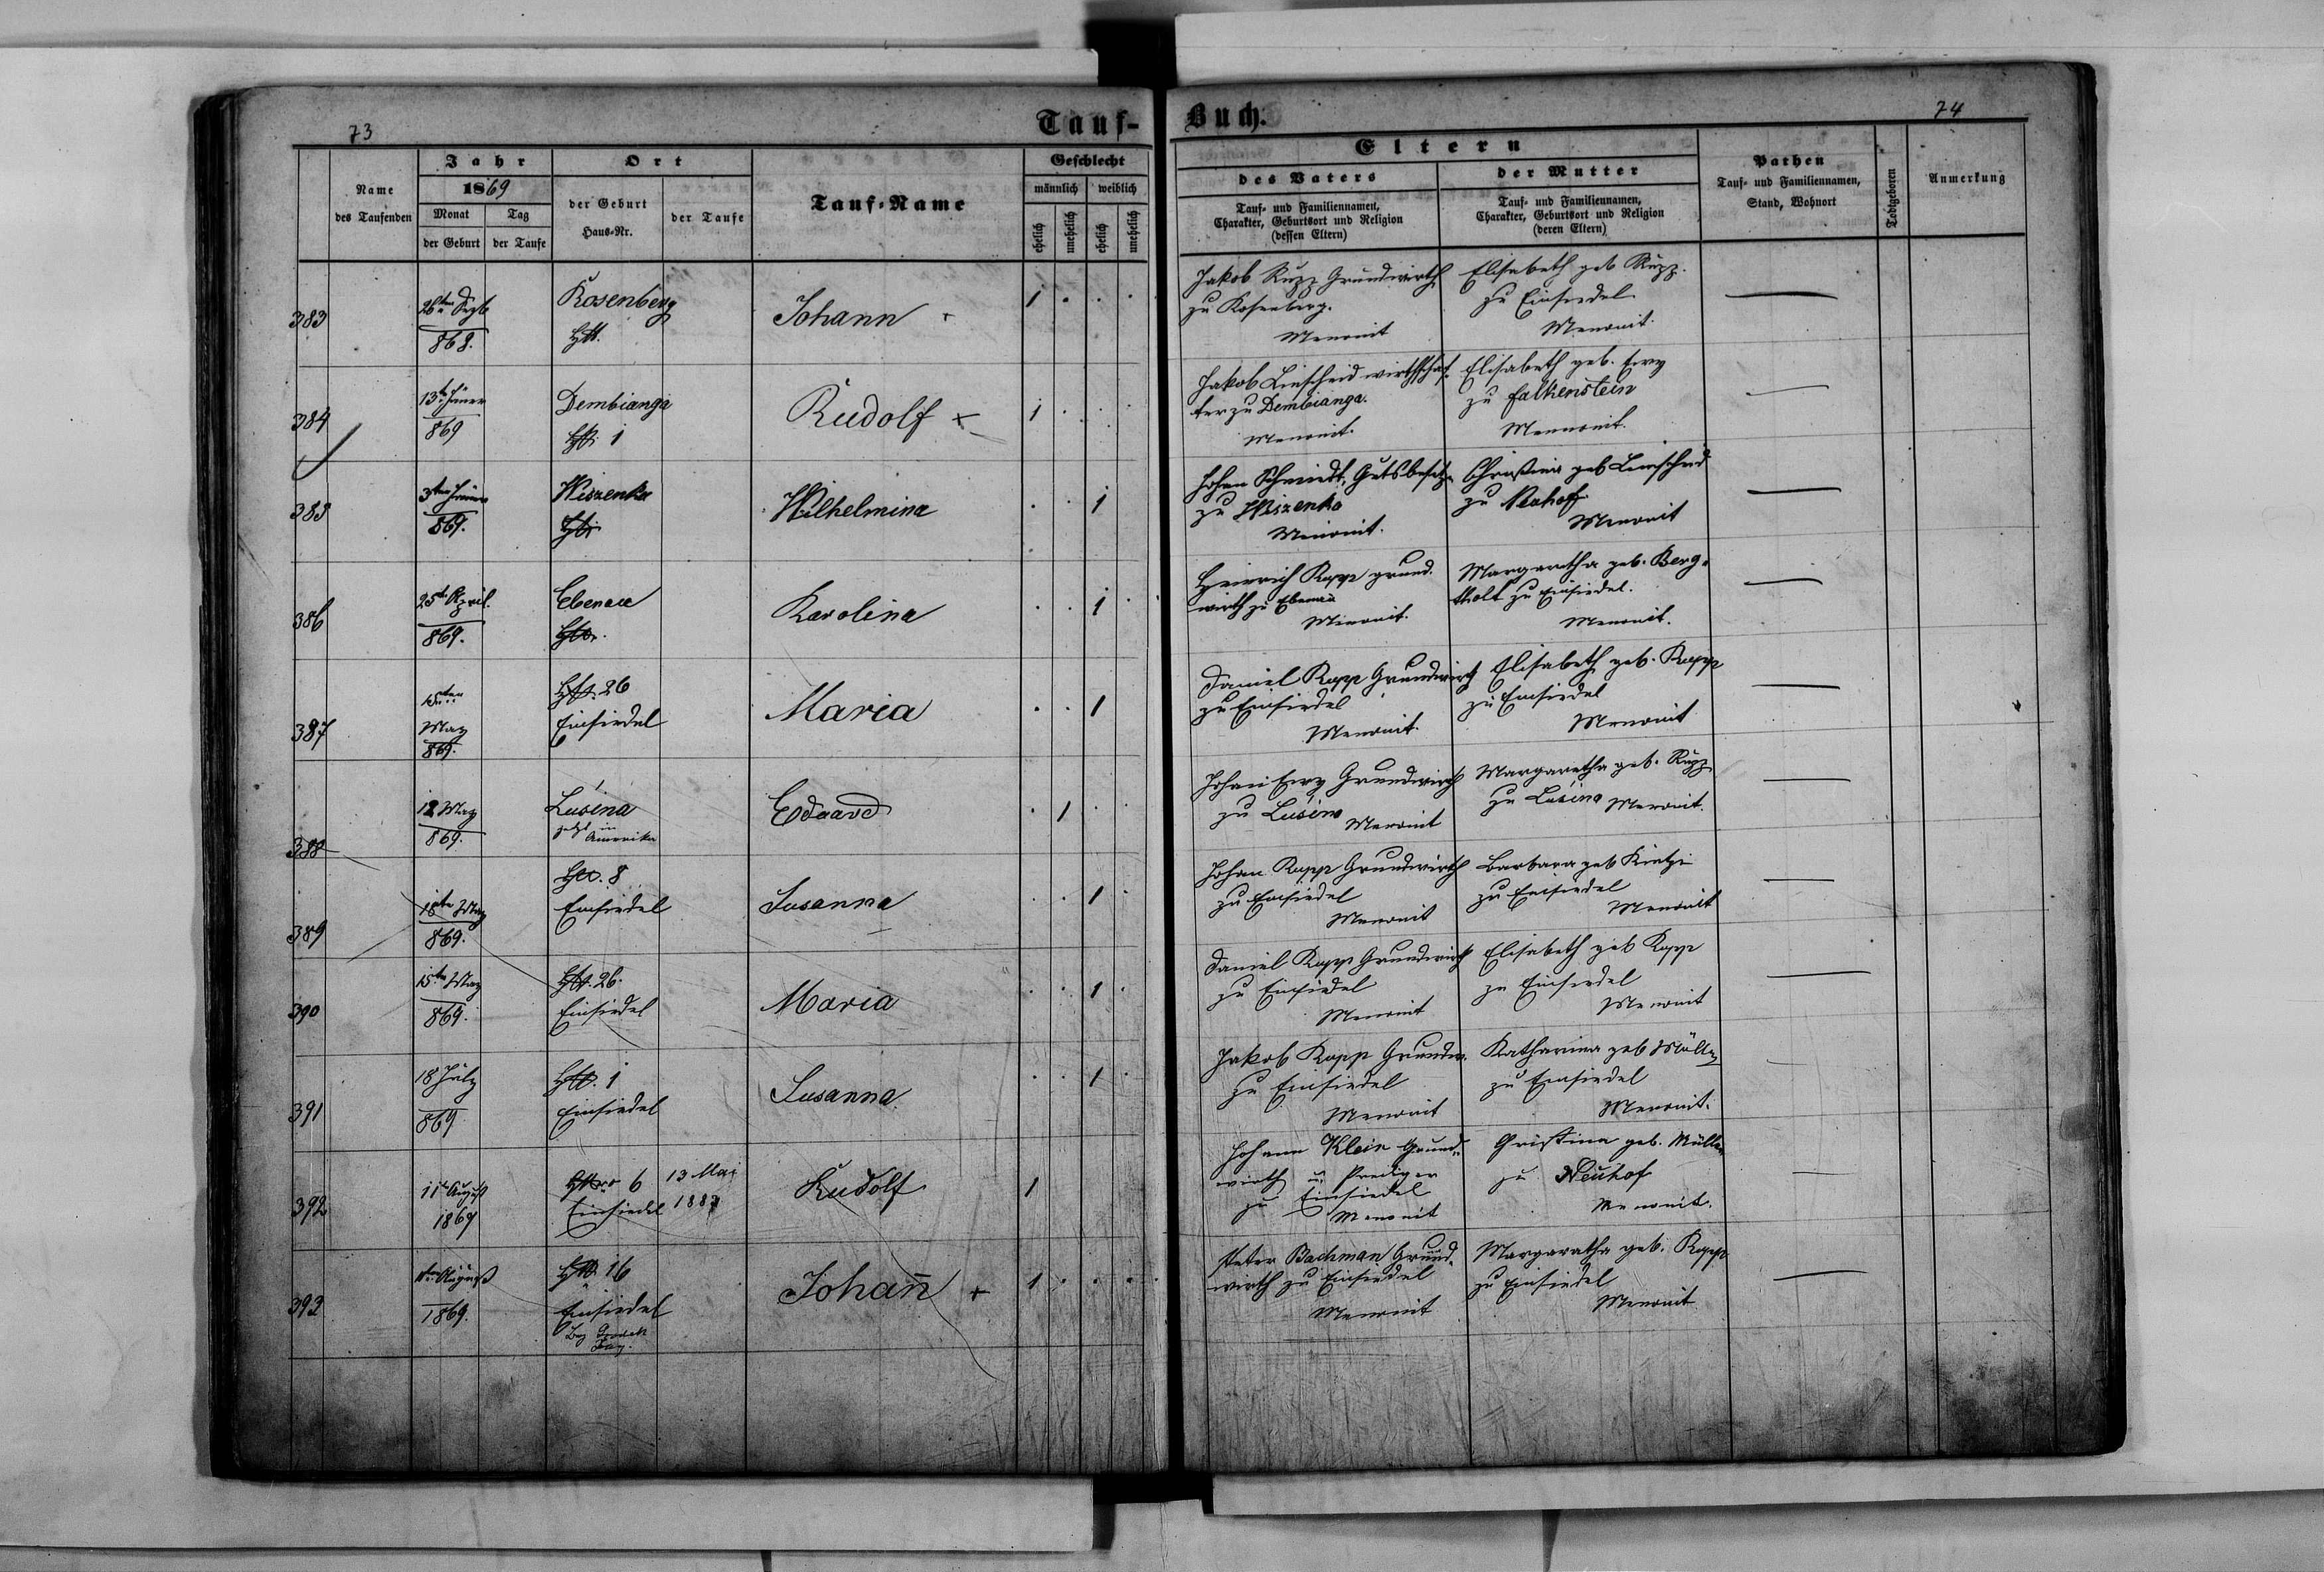 73
Tauf-
Buch.
74
Name
des Taufenden
Jahr
1869
Monat
der Geburt
Tag
der Taufe
Ort
der Geburt
Haus-Nr.
der Taufe
Tauf-Name
Geschlecht
männlich
weiblich
ehelich
unehelich
ehelich
unehelich
Eltern
des Vaters
Tauf- und Familiennamen,
Charakter, Geburtsort und Religion
(dessen Eltern)
der Mutter
Tauf- und Familiennamen,
Charakter, Geburtsort und Religion
(deren Eltern)
Pathen
Tauf- und Familiennamen,
Stand, Wohnort
Todtgeboren
Anmerkung
383
868.
Rosenberg
Johann
1
Jakob Rupp Grundwirth
zu Rosenberg.
Menonit
Elisabeth geb Rupp.
zu Einsiedel
Menonit.
384
13t Jäner
869
Dembianga
1
Rudolf +
1
Jakob Linscheid wirthschaf-
ter zu Dembianga.
Menonit.
Elisabeth geb. Ewy
zu Falkenstein
Mennonit.
385
3ten Jäner
869.
Wiszenka
Wilhelmina
1
Johan Schmidt, Gutsbesitz.
zu Wiszenka
Menonit.
Christina geb Linscheid
zu Neuhof
Menonit
386
25t April.
869.
Ebenau
Karolina
1
Heinrich Rupp grund-
wirth zu Ebenau
Menonit.
Margaretha geb. Berg-
tholt zu Einsiedel.
Menonit.
387
15ten
May
869.
26
Einsiedel
Maria
1
Daniel Rupp Grundwirth
zu Einsiedel
Menonit.
Elisabeth geb. Rupp
zu Einsiedel
Menonit
388
12 May
869.
Lusina
jetzt in Amerika
Eduard
1
Johan Ewy Grundwirth
zu Lusina
Menonit
Margaretha geb. Rupp
zu Lusina Menonit.
389
18te May
869.
8
Einsiedel
Susanna
1
Johan Rupp Grundwirth
zu Einsiedel
Menonit
Barbara geb Kintzi
zu Einsiedel
Menonit
390
15te May
869.
26.
Einsiedel
Maria
1
Daniel Rupp Grundwirth
zu Einsiedel
Menonit
Elisabeth geb Rupp
zu Einsiedel
Menonit
391
18 July
869
1
Einsiedel
Susanna
1
Jakob Rupp Grundw.
zu Einsiedel
Menonit
Katharina geb Müller
zu Einsiedel
Menonit.
392
11t August
1869
6
Einsiedel
13 Mai
Rudolf
1
Johann Klein Grund-
wirth u. Prediger
zu Einsiedel
Menonit
Christina geb. Müller
zu Neuhof
Menonit.
393
August
1869.
16
Einsiedel
Johann +
1
Peter Bachman Grund-
wirth zu Einsiedel
Menonit
Margaretha geb. Rupp
zu Einsiedel
Menonit